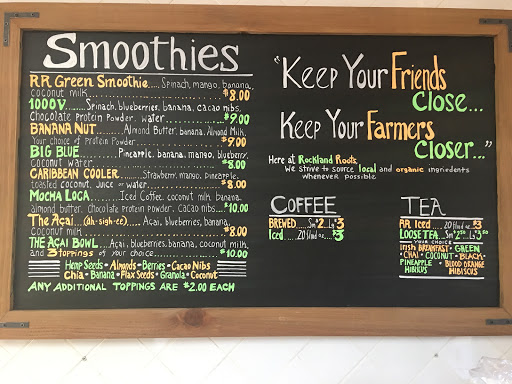 Smoothies
RR Green Smoothie..... Spinach, mango, banana,
coconut milk.................... $8.00
1000V...... Spinach, blueberries, banana, cacao nibs,
Chocolate Protein Powder, water ........ $9.00
BANANA NUT...... Almond Butter, banana, Almond Milk,
Your choice of protein Powder ........ $9.00
BIG BLUE......... Pineapple, banana, mango, blueberry,
Coconut water ........ $8.00
CARIBBEAN COOLER...... Strawberry, mango, pineapple,
toasted coconut, Juice or water ...... $8.00
MOCHA LOCA...... Iced Coffee, coconut milk, banana,
almond butter, chocolate protein powder, cacao nibs... $10.00
The Açai....(ah-sigh-ee)... Acai, blueberries, banana,
Coconut milk ........ $8.00
THE AÇAI BOWL... Acai, blueberries, banana, coconut milk,
and 3 toppings of your choice ........ $10.00
Hemp Seeds • Almonds • Berries • Cacao Nibs
Chia • Banana • Flax Seeds • Granola • Coconut
ANY ADDITIONAL TOPPINGS ARE $2.00 EACH
"KEEP YOUR FRIENDS
CLOSE...
KEEP YOUR FARMERS
CLOSER..."
Here at Rockland Roots
We strive to source local and organic ingredients
whenever possible.
COFFEE
BREWED....Sm $2...La $3
Iced ...... 20 fluid oz... $3
TEA
RR Iced ....20 fluid oz $3
LOOSE TEA...Sm $2.50..La $3.50
YOUR CHOICE
IRISH BREAKFAST • GREEN
• CHAI • COCONUT • BLACK •
PINEAPPLE • BLOOD ORANGE
HIBISCUS HIBISCUS